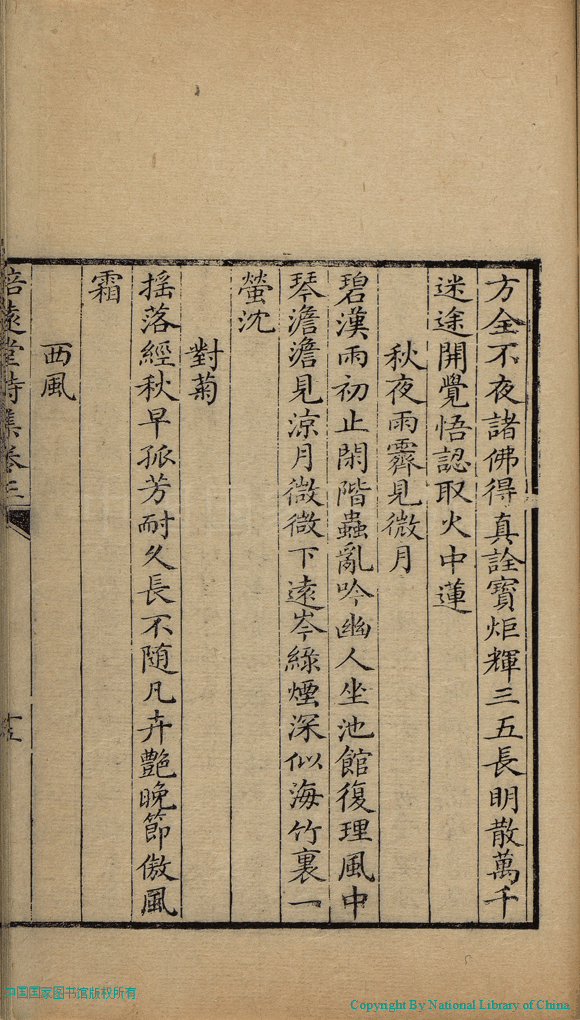 方全不夜諸佛得真詮寶炬輝三五長明散萬千
迷途開覺悟認取火中蓮
秋夜雨霽見微月
碧漢雨初止閑階蟲亂吟幽人坐池館復理風中
琴澹澹見涼月微微下遠岑綠煙深似海竹裏一
螢沈
對菊
搖落經秋早孤芳耐久長不随凡卉艷晚節傲風
霜
西風
培遠堂詩集卷三
中国国家图书馆版权所有
Copyright By National Library of China